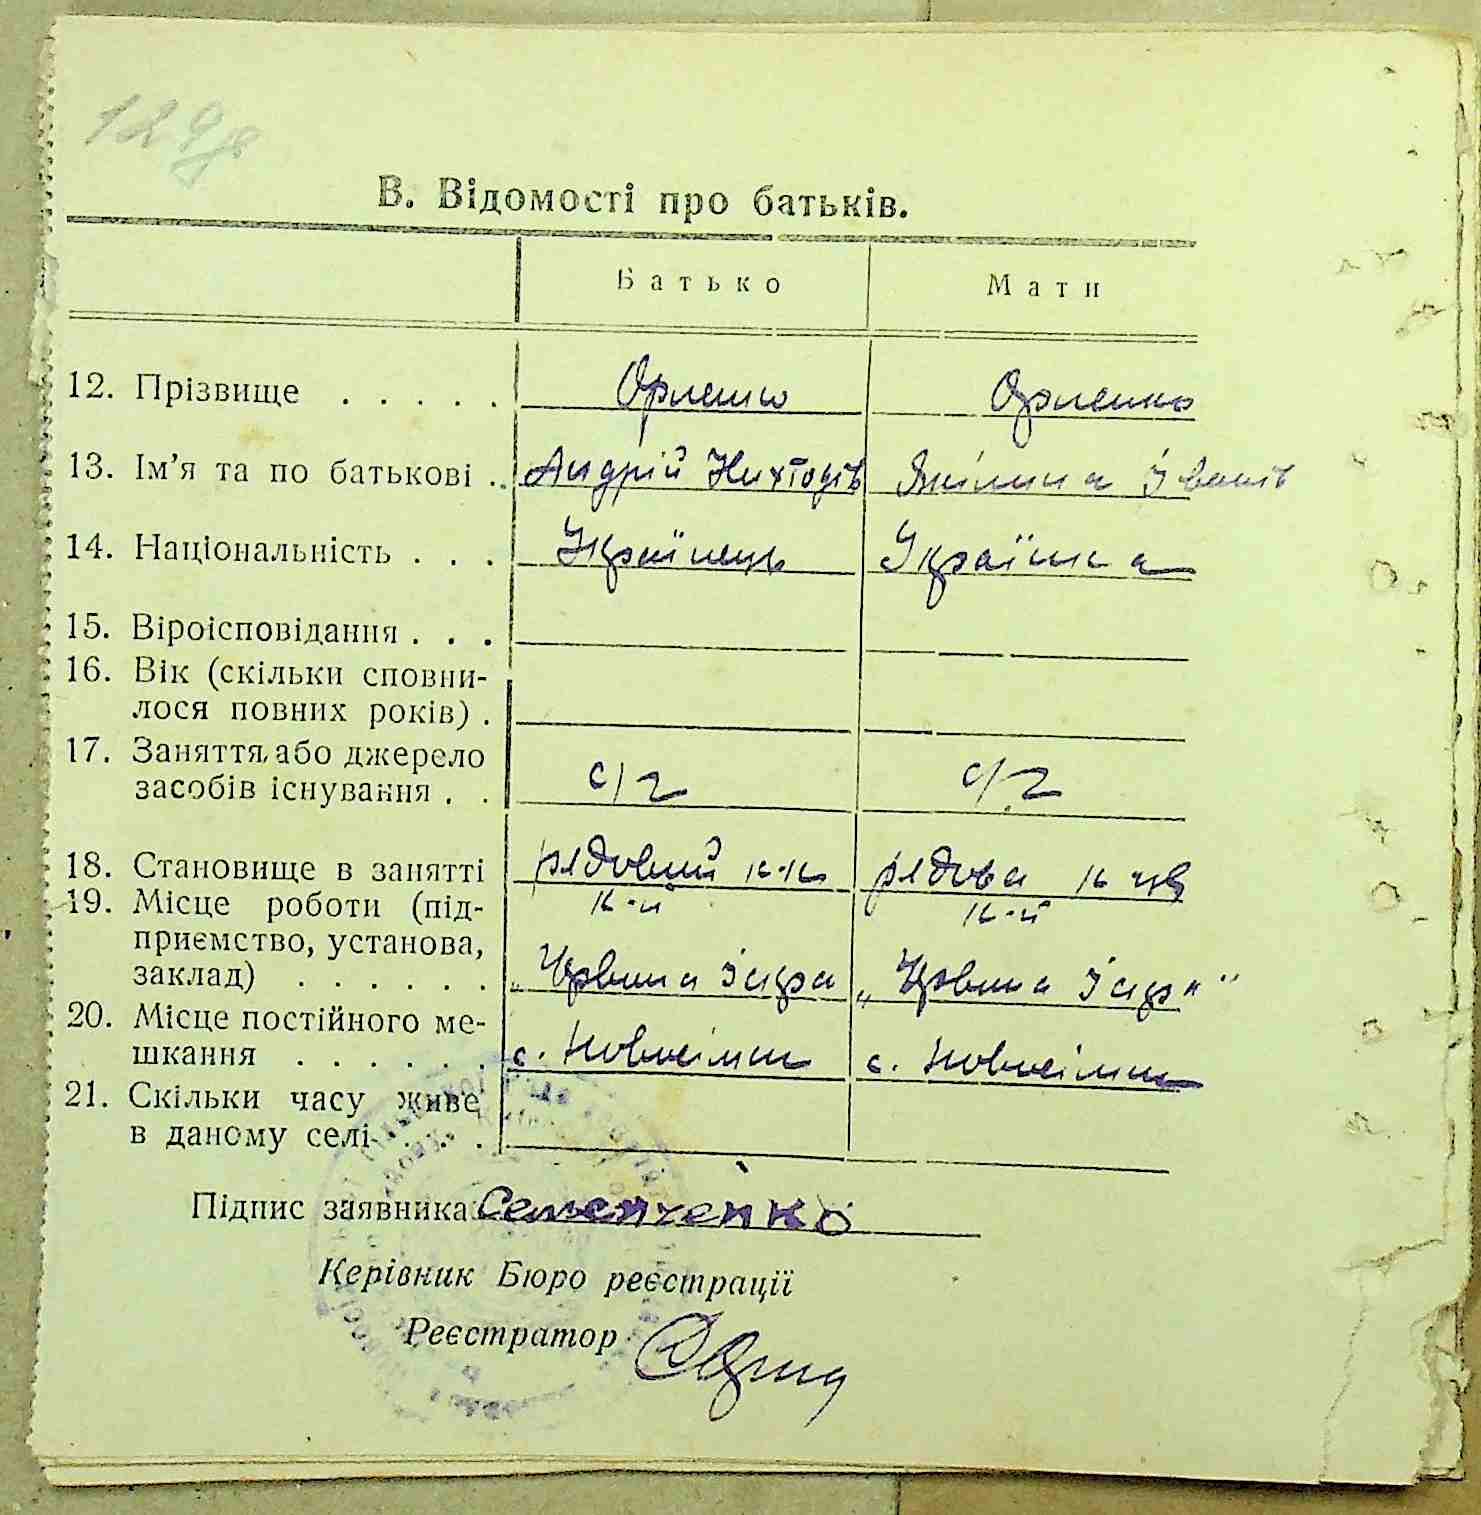 В. Відомості про батьків.
Батько Мати
12. Прізвище . . . . . Орленко Орленко
13. Ім'я та по батькові . . Андрій Никодів Якілина Іванів
14. Національність . . . Українець Українка
15. Віроісповідання . . .
16. Вік (скільки сповни-
лося повних років) .
17. Заняття, або джерело
засобів існування . . с/г с/г
18. Становище в занятті рядовий к-к рядова
19. Місце роботи (під- к-п к-п
приємство, установа,
заклад) . . . . . . „Червона Зірка „Червона Зірка"
20. Місце постійного ме-
шкання . . . . . . с. с.
21. Скільки часу живе
в даному селі . . .
Підпис заявника: Семенченко
Керівник Бюро реєстрації
Реєстратор